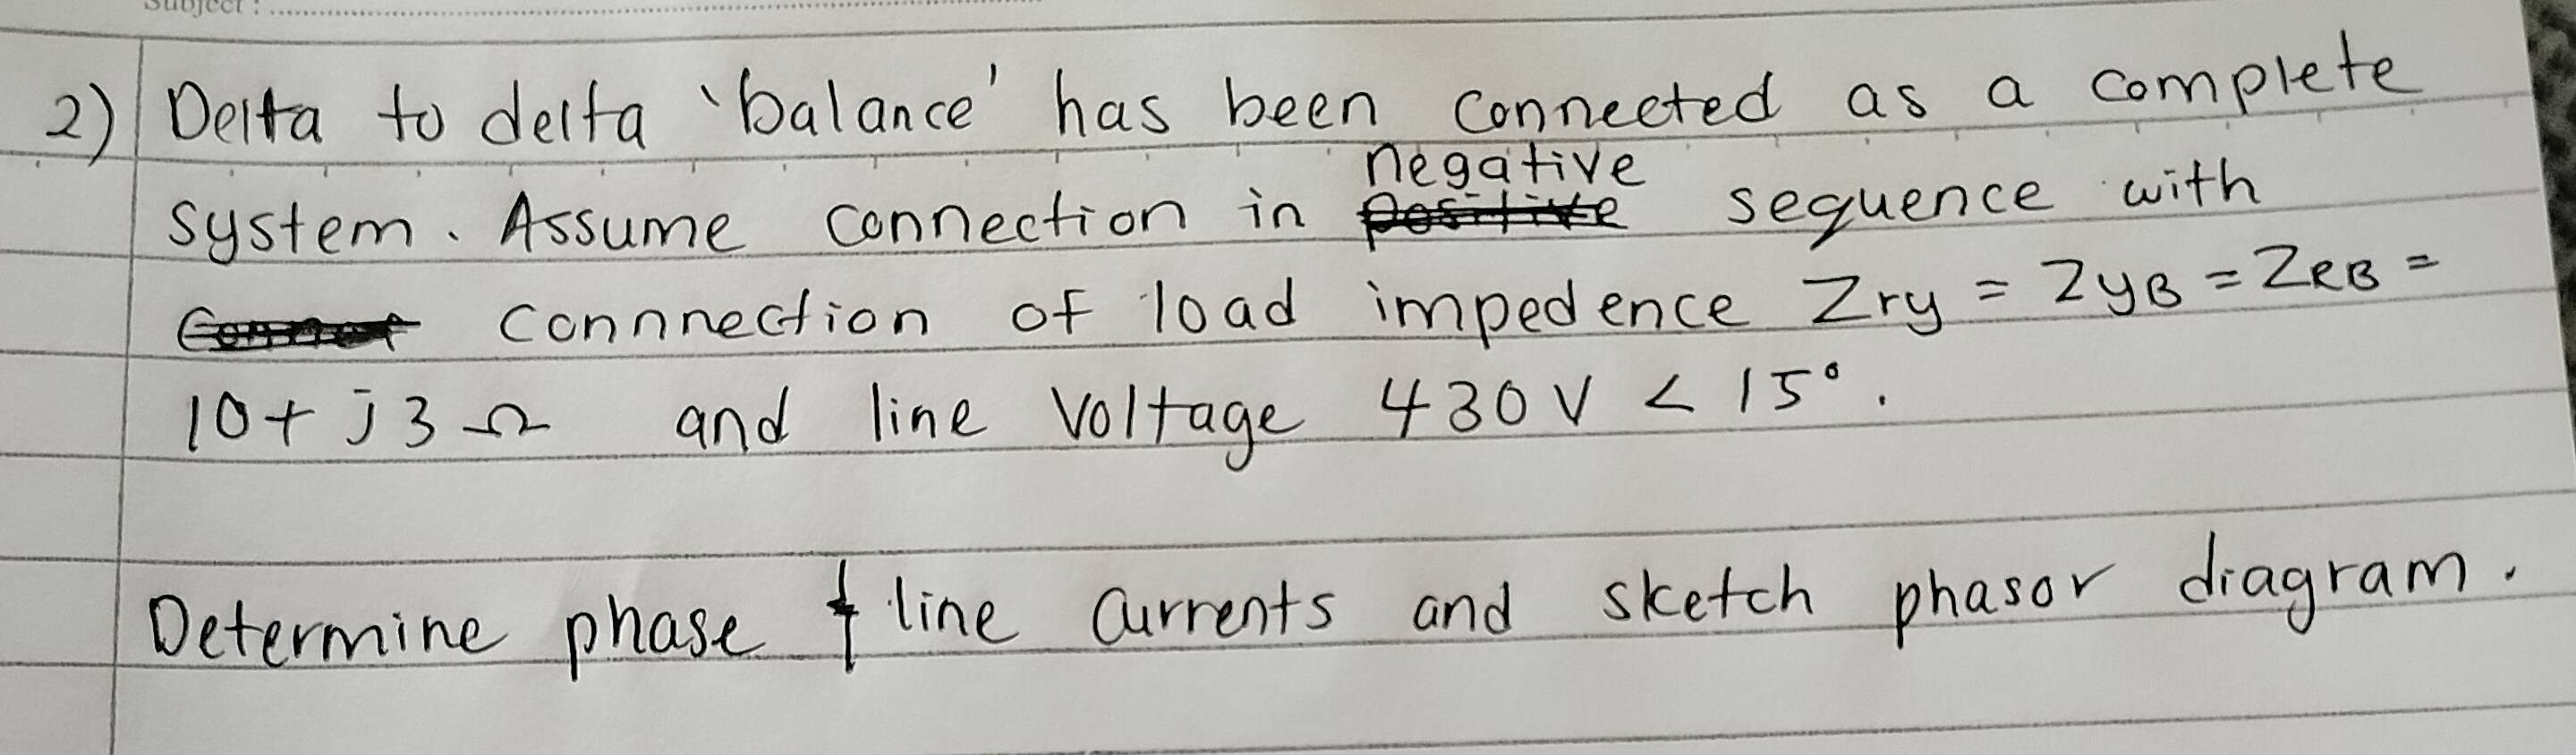 Subject :
2) Delta to delta 'balance' has been connected as a complete
negative
system. Assume connection in positive sequence with
connnection of load impedence Zry = ZyB = ZRB =
10+ j3 Ω and line voltage 430 V < 15°.
Determine phase & line currents and sketch phasor diagram.